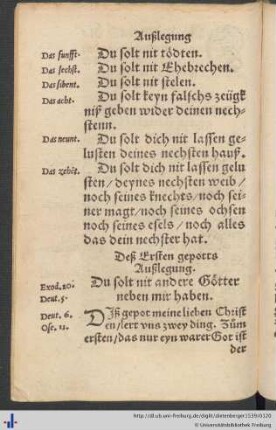 Außlegung
Das fünfft. Du solt nit tödten.
Das sechst. Du solt nit Ehebrechen.
Das sibent. Du solt nit stelen.
Das acht. Du solt keyn falschs zeügk
niß geben wider deinen nech-
stenn.
Das neunt. Du solt dich nit lassen ge-
lusten deines nechsten hauß.
Das zehẽt. Du solt dich nit lassen gelu
sten / deynes nechsten weib /
noch seines knechts / noch sei-
ner magt / noch seines ochsen
noch seines esels / noch alles
das dein nechster hat.
Deß Ersten gepotts
Außlegung.
Exod. 20. Du solt nit andere Götter
Deut. 5. neben mir haben.
Deut. 6. Diß gepot meine lieben Christ
Ose. 13. en / lert vns zwey ding. Zům
ersten / das nur eyn warer Got ist
der
http://dl.ub.uni-freiburg.de/diglit/dietenberger1539/0320
© Universitätsbibliothek Freiburg